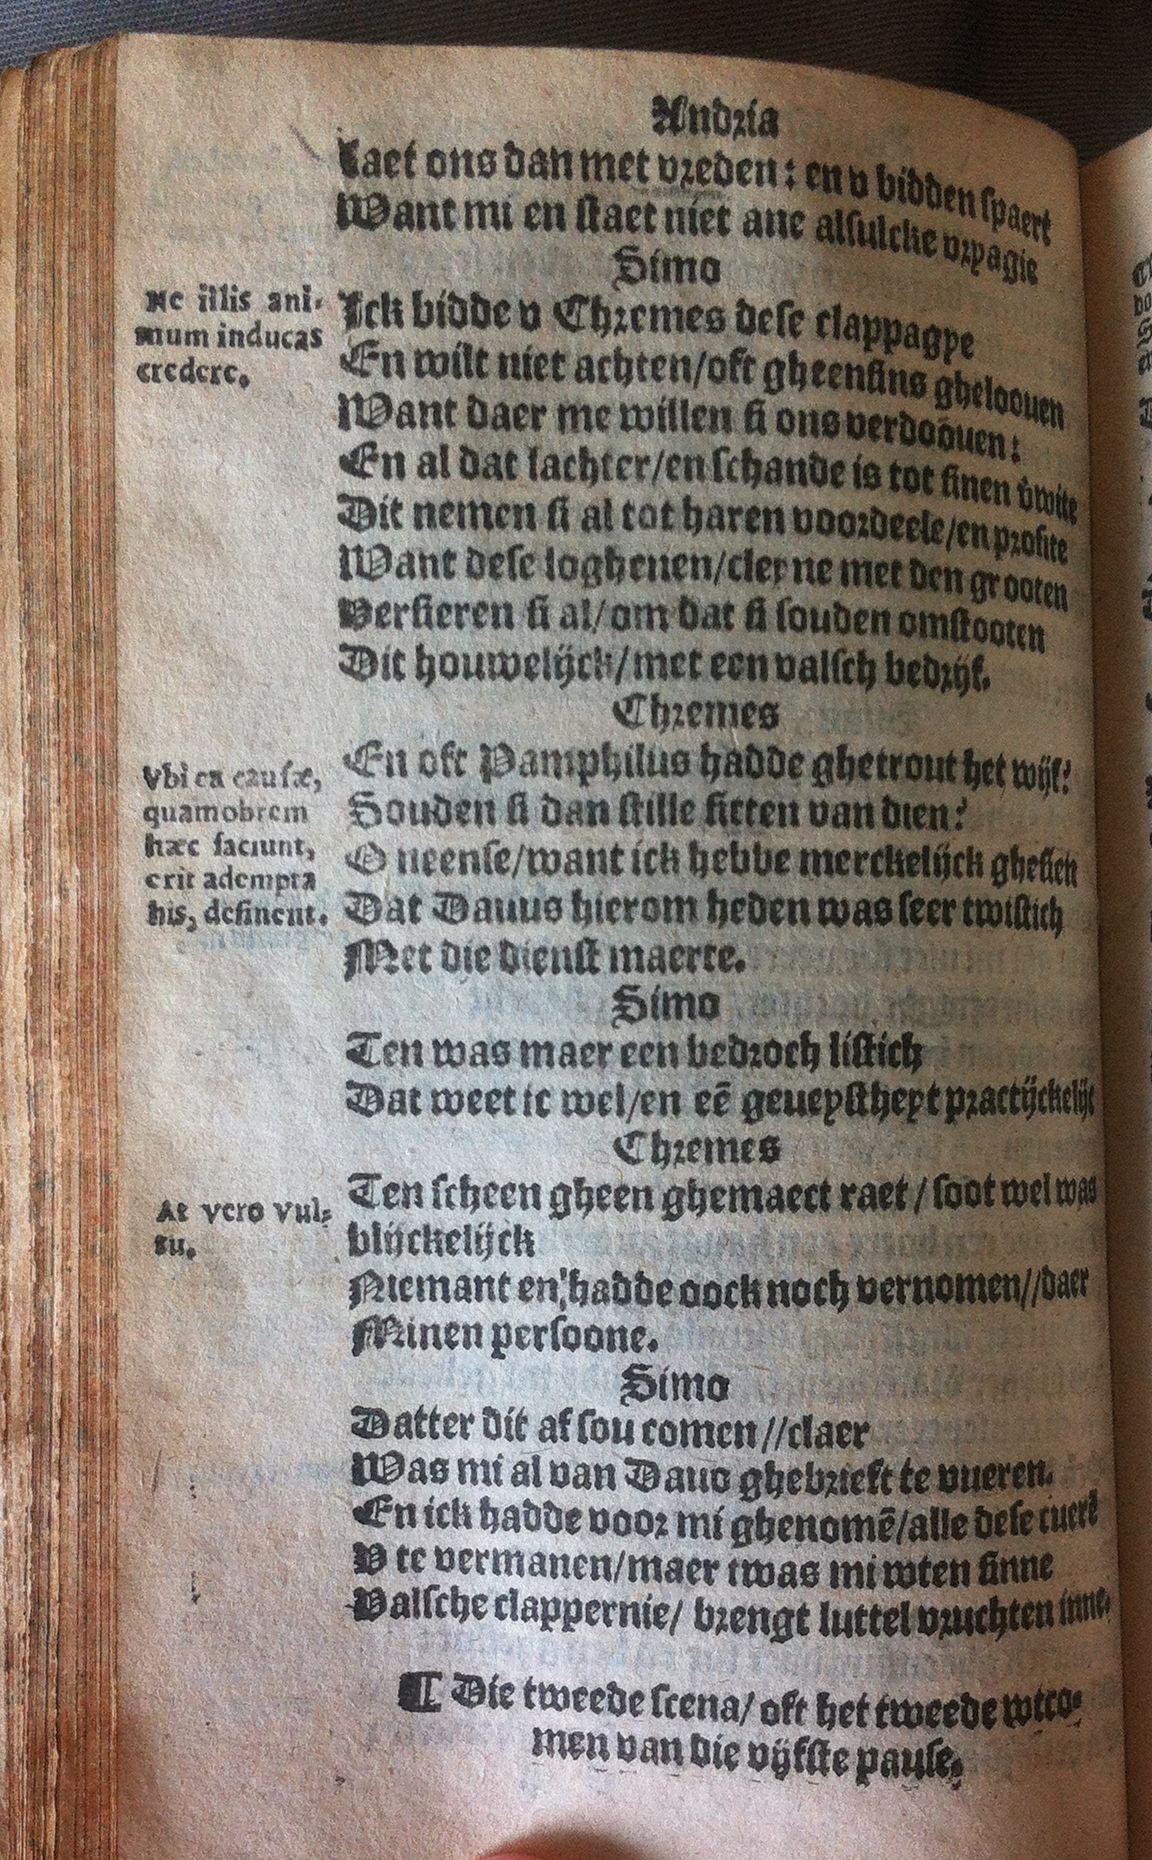 Andria
Laet ons dan met vreden: en v bidden spaert
Want mi en staet niet ane alsulcke vrpagie
Simo
Ne illis ani-
mum inducas
credere.
Ick bidde v Chremes dese clappagye
En wilt niet achten/oft gheensins gheloouen
Want daer me willen si ons verdoouen:
En al dat lachter/en schande is tot sinen v̄wite
Dit nemen si al tot haren voordeele/en profite
Want dese loghenen/cleyne met den grooten
Versieren si al/om dat si souden omstooten
Dit houwelijck/met een valsch bedrijf.
Chremes
Vbi ea causæ,
quamobrem
hæc faciunt,
erit adempta
his, desinent.
En oft Pamphilus hadde ghetrout het wijf?
Souden si dan stille sitten van dien?
O neense/want ick hebbe merckelijck ghesien
Dat Dauus hierom heden was seer twistich
Met die dienst maerte.
Simo
Ten was maer een bedroch listich
Dat weet ic wel/en eē geueystheyt practijckelijc
Chremes
At vero vul-
tu.
Ten scheen gheen ghemaect raet/soot wel was
blijckelijck
Niemant en hadde oock noch vernomen//daer
Minen persoone.
Simo
Datter dit af sou comen//claer
Was mi al van Dauo ghebrieft te vueren.
En ick hadde voor mi ghenomē/alle dese cuerē
V te vermanen/maer twas mi wten sinne
Valsche clappernie/ brengt luttel vruchten inne.
¶ Die tweede scena/ oft het tweede wtco-
men van die vijfste pause.